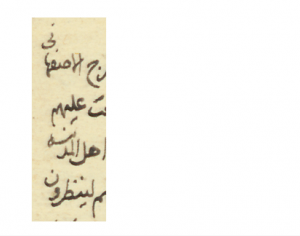 رج الاصفهانى
ت عليهم
اهل المدينة
م لينظرون